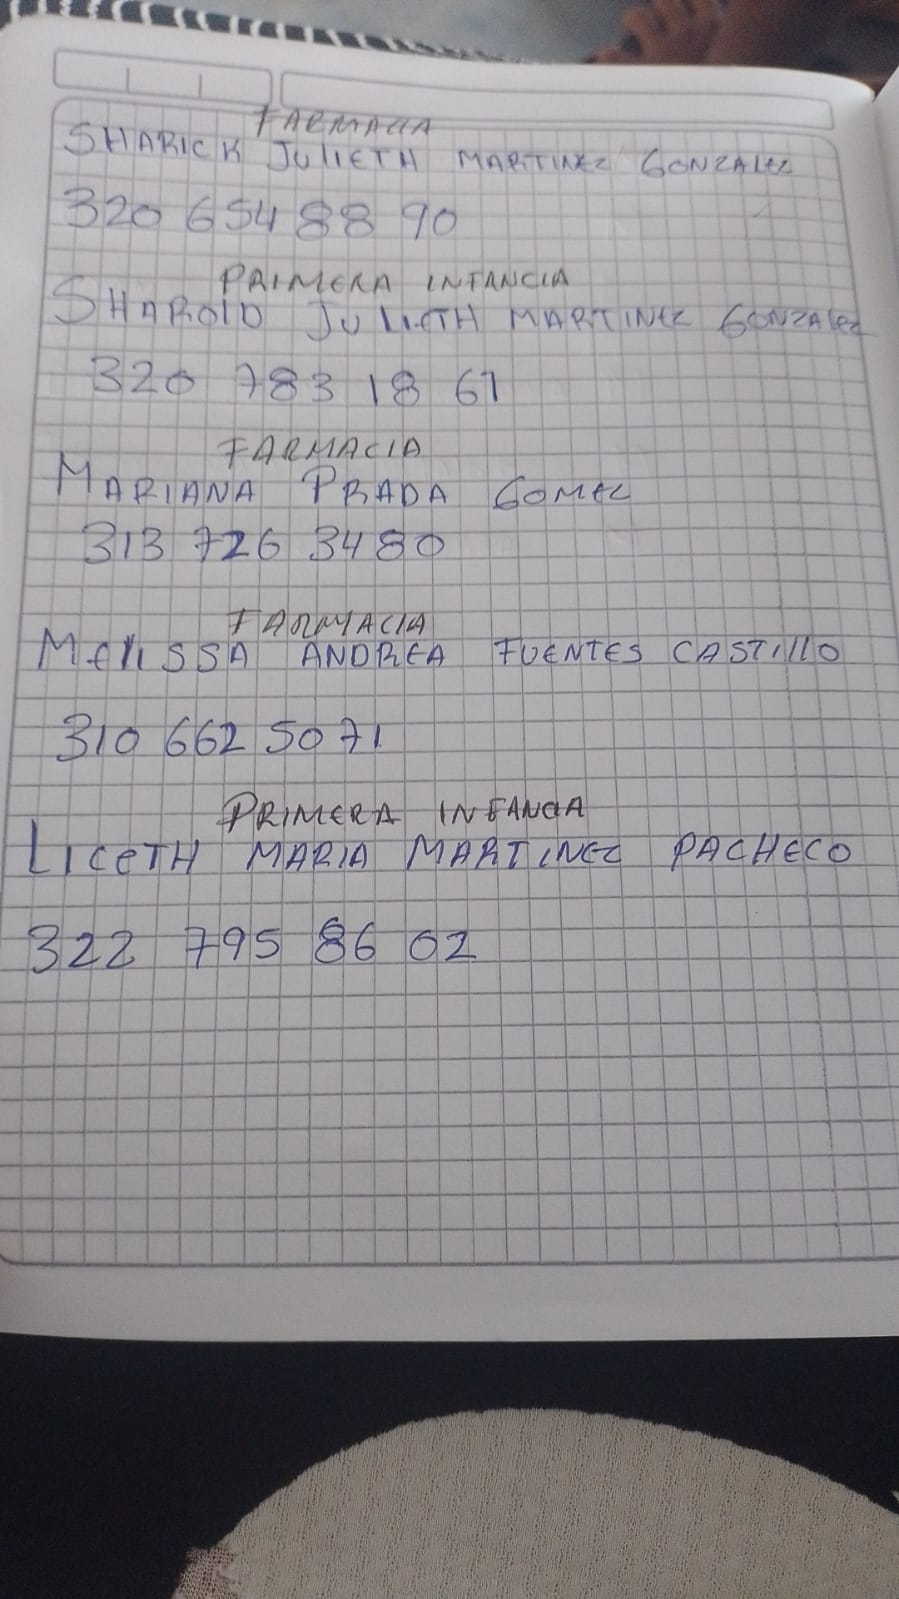 FARMACIA
SHARICK JULIETH MARTINEZ GONZALEZ
320 654 88 90
PRIMERA INFANCIA
SHAROLD JULIETH MARTINEZ GONZALEZ
320 783 18 67
FARMACIA
MARIANA PRADA GOMEZ
313 726 3480
FARMACIA
MELISSA ANDREA FUENTES CASTILLO
310 662 5071
PRIMERA INFANCIA
LICETH MARIA MARTINEZ PACHECO
322 795 86 02